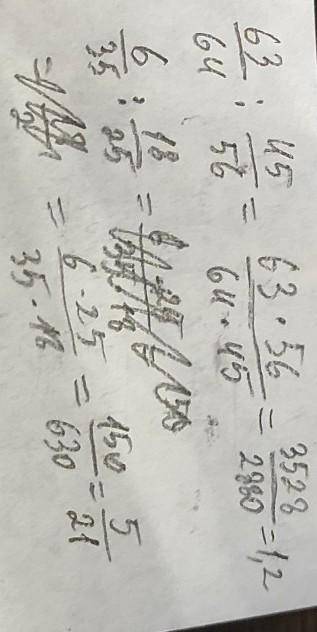 63/64 : 45/56 = 63 · 56 / 64 · 45 = 3528/2880 = 1,2
6/35 : 18/25 =
= 6 · 25 / 35 · 18 = 150/630 = 5/21